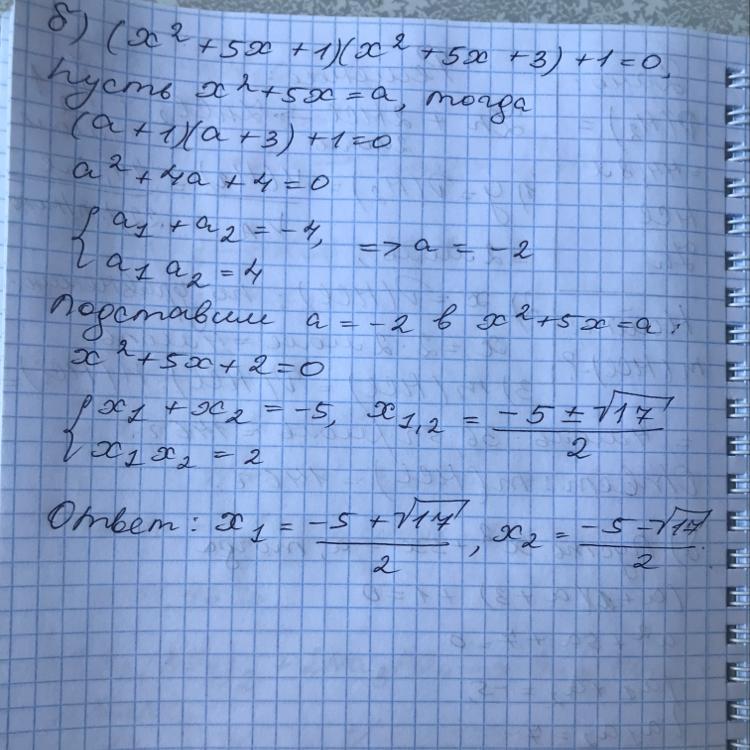 б) (x² + 5x + 1)(x² + 5x + 3) + 1 = 0,
Пусть x² + 5x = a, тогда
(a + 1)(a + 3) + 1 = 0
a² + 4a + 4 = 0
{ a₁ + a₂ = -4, => a = -2
a₁ a₂ = 4
Подставим a = -2 в x² + 5x = a:
x² + 5x + 2 = 0
{ x₁ + x₂ = -5, x₁,₂ = (-5 ± √17)/2
x₁ x₂ = 2
Ответ: x₁ = (-5 + √17)/2, x₂ = (-5 - √17)/2.